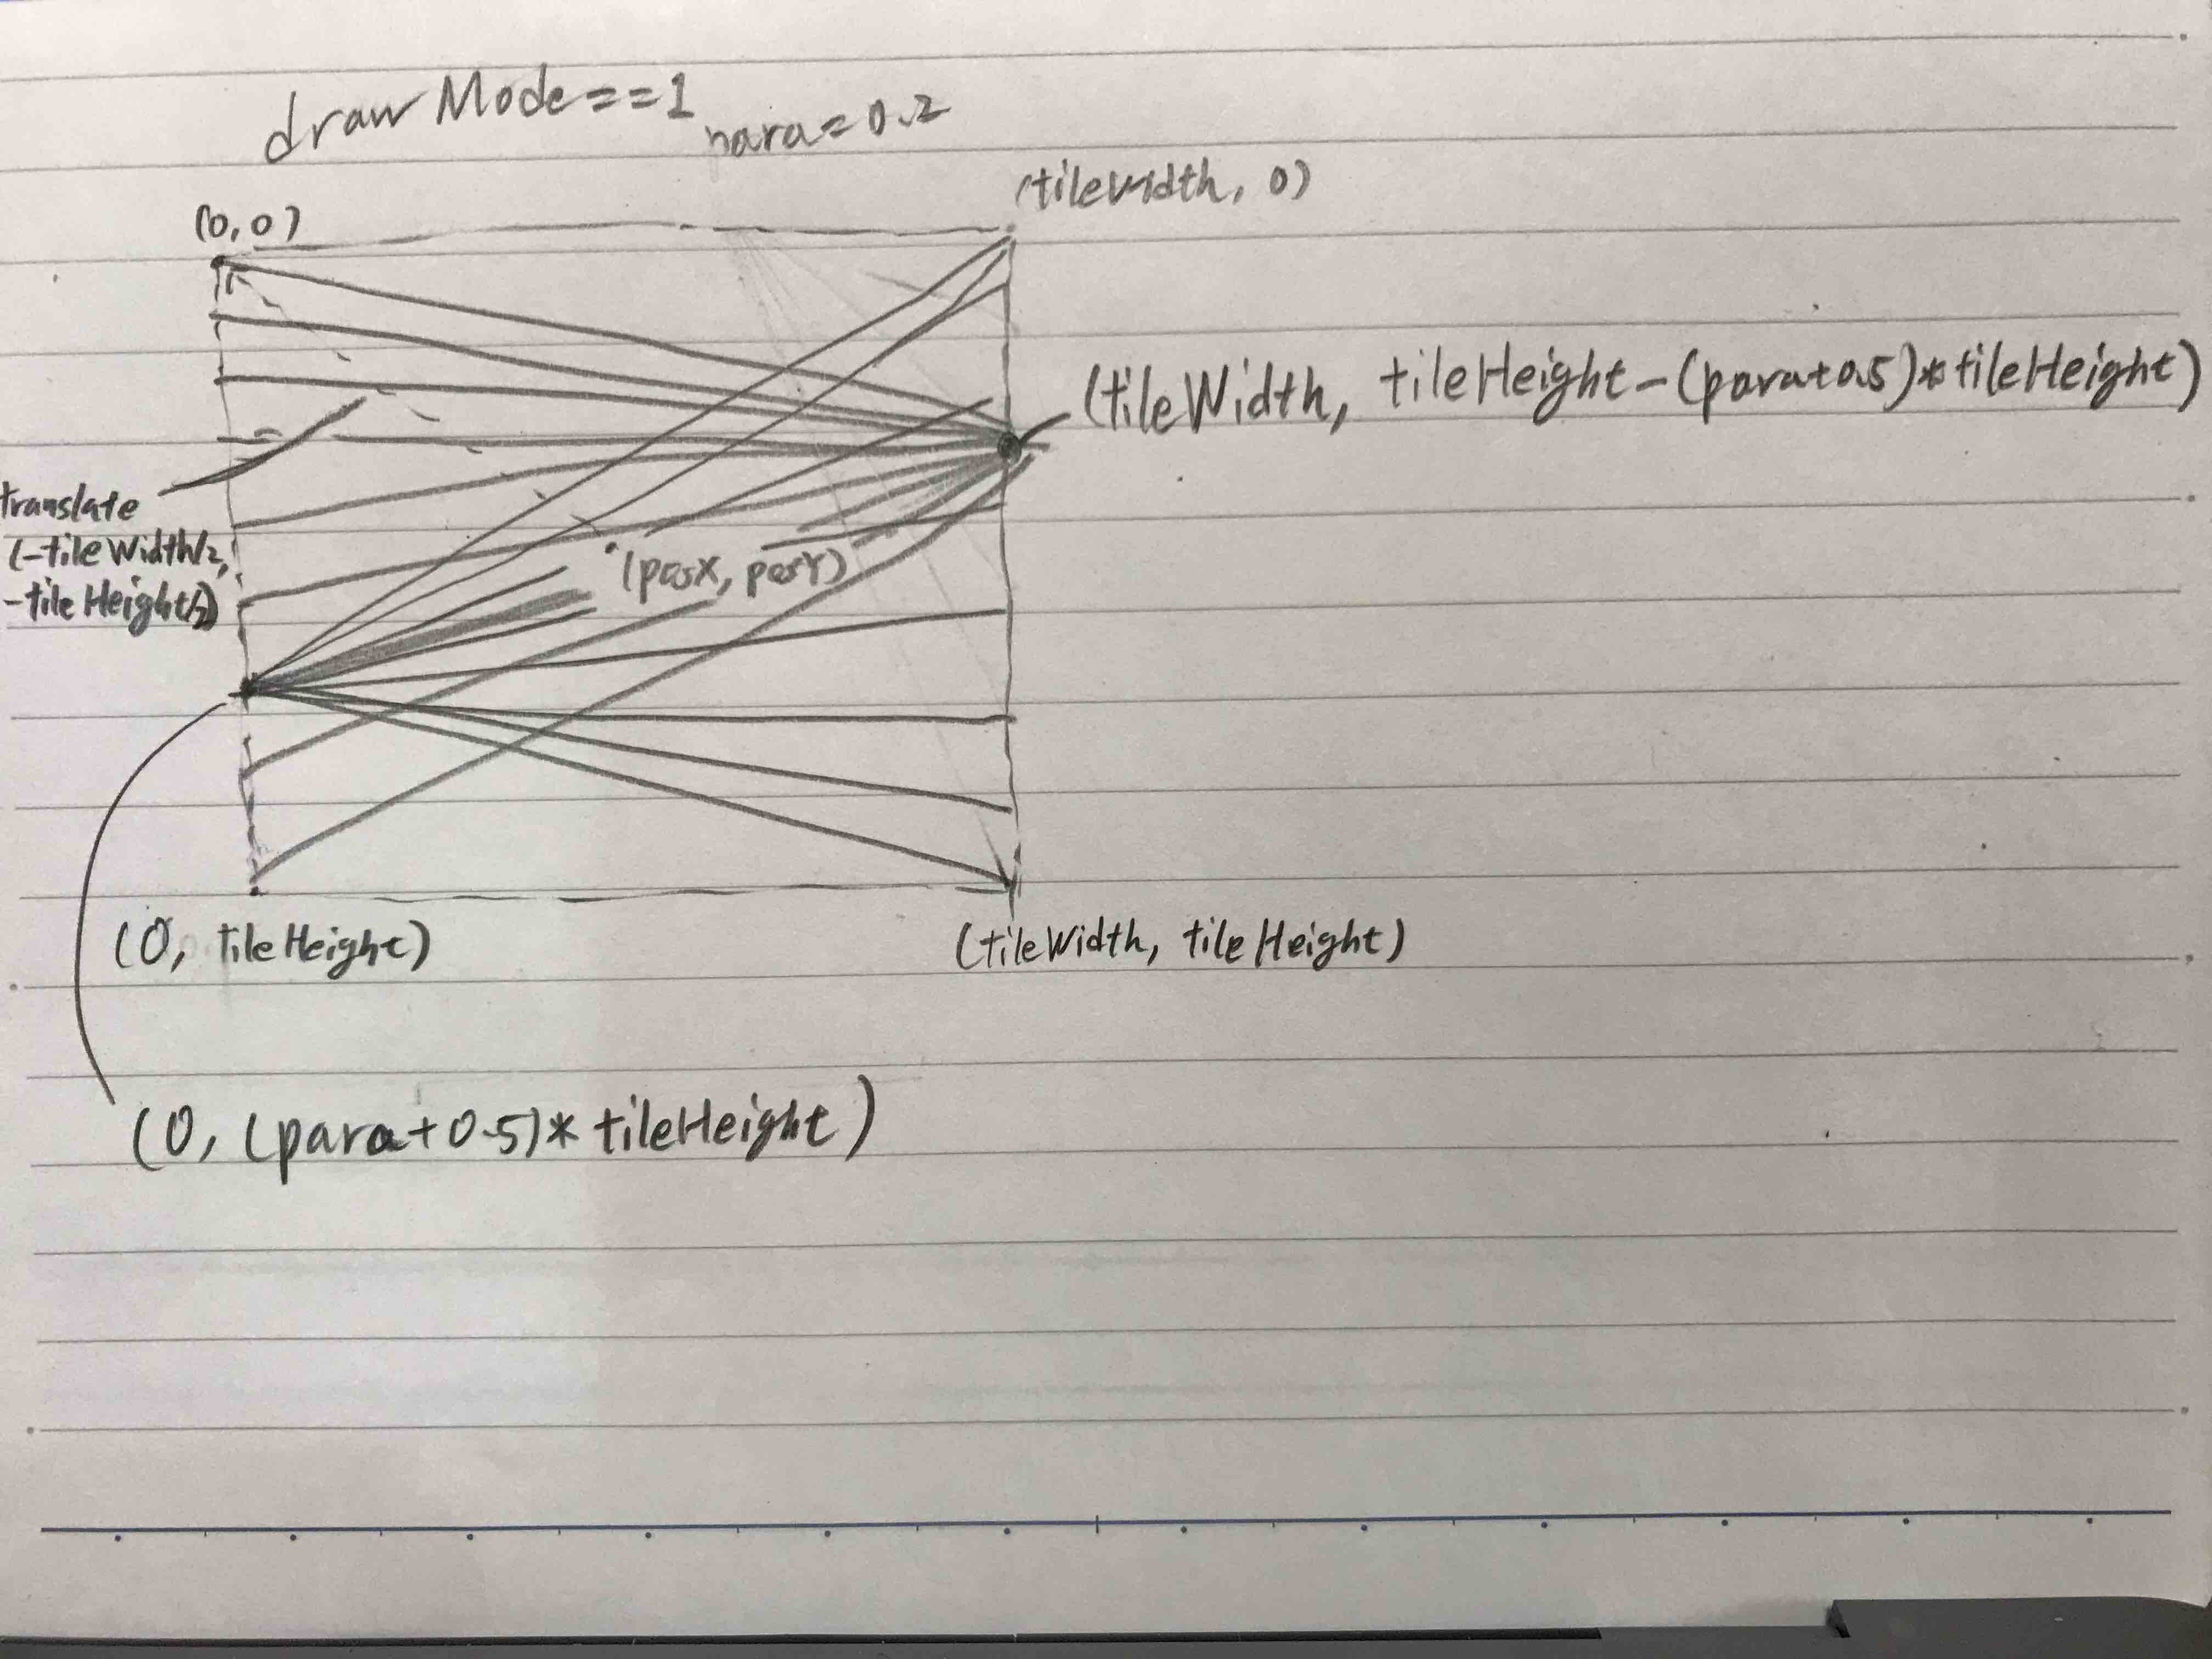 drawMode==1
para=0.2
(tileWidth, 0)
(0,0)
(tileWidth, tileHeight-(para+0.5)*tileHeight)
translate
(-tileWidth/2,
-tileHeight/2)
(posX, posY)
(0, tileHeight)
(tileWidth, tileHeight)
(0, (para+0.5)*tileHeight)